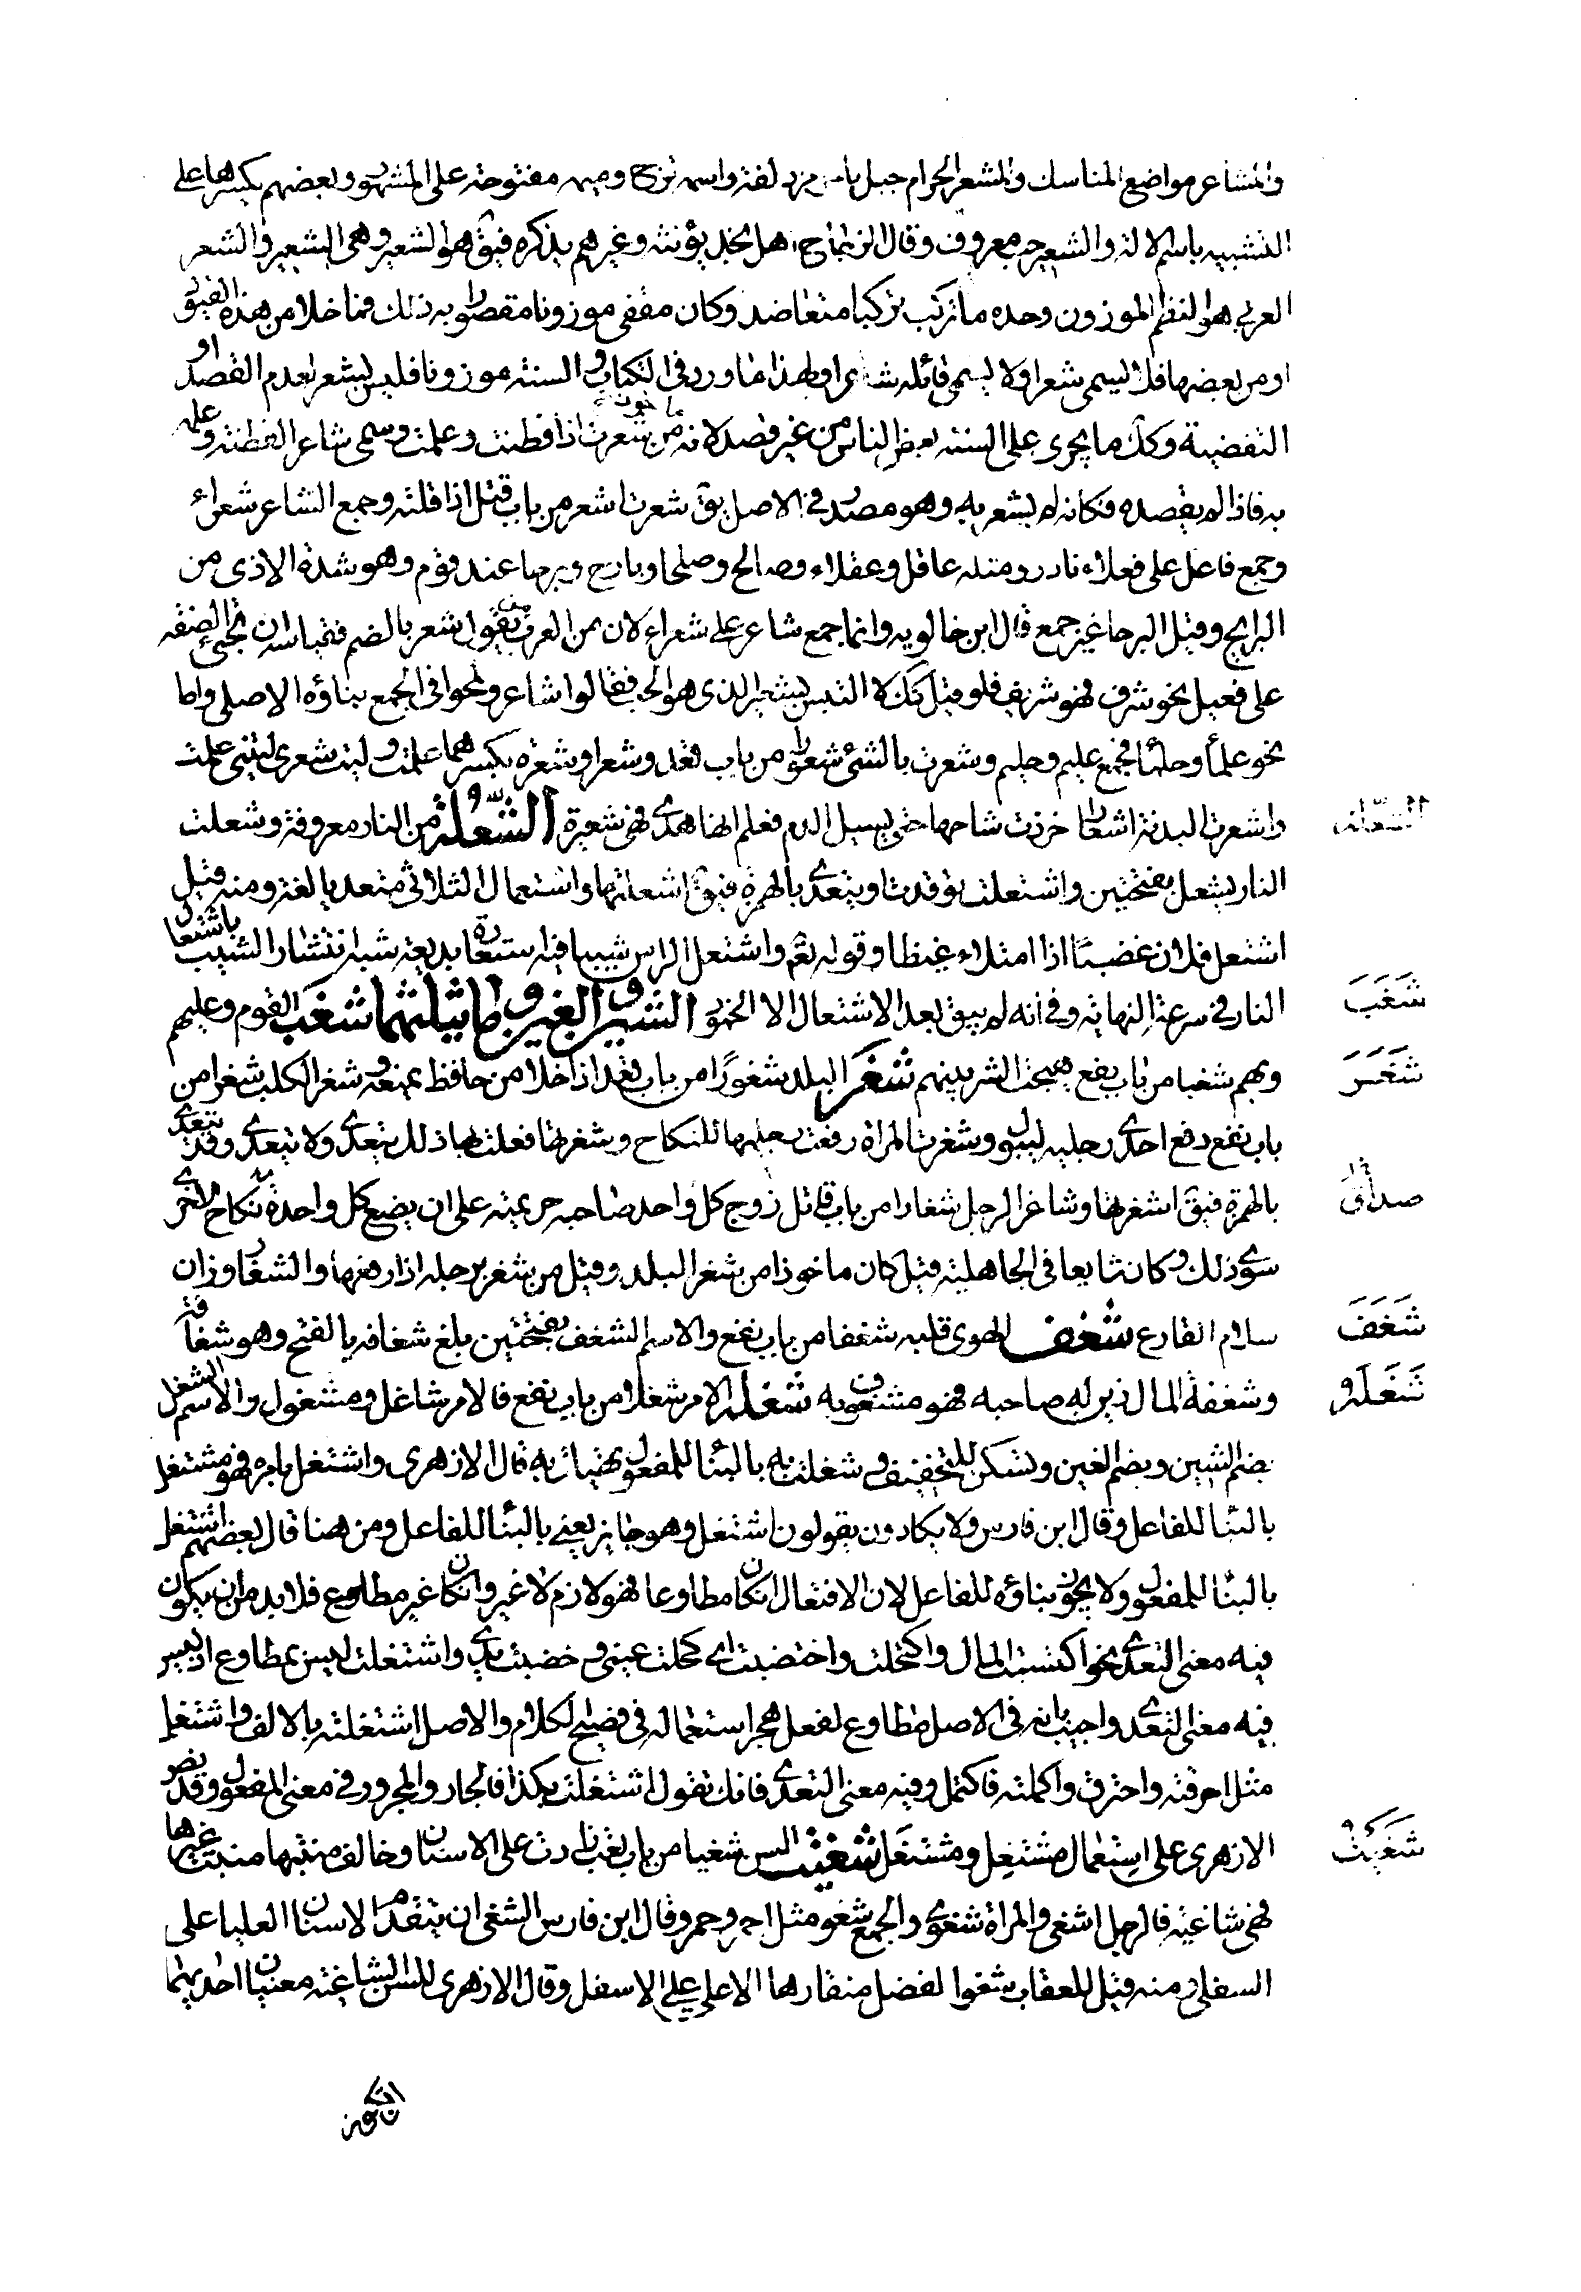 والمشاعر مواضع المناسك والمشعر الحرام جبل باخر مزدلفة واسمه قزح وميمه مفتوحة على المشهور وبعضهم يكسرها على
التشبيه باسم الالة والشعير حب معروف وقال الزجاج اهل نجد يؤنثه وغيرهم يذكره فيق هو الشعير وهى الشعير والشعر
العربى هو النظم الموزون وحده ما تركب تركبا متعاضدا وكان مقفى موزونا مقصودا به ذلك فما خلا من هذه القيود
او من بعضها فلا يسمى شعرا ولا يسمى قائله شاعرا ولهذا ما ورد فى الكتاب والسنة موزونا فليس بشعر لعدم القصد او
التقفية وكك ما يجرى على السنة بعض الناس من غير قصد لانه ماخوذ من شعرت اذا فطنت وعلمت وسمى شاعرا لفطنته وعلمه
به فاذا لم يقصده فكانه لم يشعر به وهو مصدر فى الاصل يق شعرت اشعر من باب قتل اذا قلته وجمع الشاعر شعراء
وجمع فاعل على فعلاء نادر ومثله عاقل وعقلاء وصالح وصلحا وبارح وبرحا عند قوم وهو شدة الاذى من
البرايح وقيل البرحا غير جمع قال ابن خالويه وانما جمع شاعر على شعراء لان من العرب من يقول شعر بالضم فقياسه ان تجىء الصفة
على فعيل نحو شرف فهو شريف فلو قيل كك لا التبس بشعير الذى هو الحب فقالوا شاعر ولمحوا فى الجمع بناؤه الاصلى واما
نحو علماً وحلماً فجمع عليم وحليم وشعرت بالشئ شعورا من باب قعد وشعرا وشعرة بكسرهما علمت وليت شعرى ليتنى علمت
واشعرت البدنة اشعارا حززت سنامها حتى يسيل الدم فعلم انها هدى فهى شعيرة الشُّعْلة من النار معروفة وشعلت
النار يشعل بفتحتين واشتعلت توقدت ويتعدى بالهمزة فيق اشعلتها واستعمال الثلاثى متعديا لغة ومنه قيل
اشتعل فلان غضبًا اذا امتلاء غيظا وقوله تعم واشتعل الراس شيبا فيه استعارة بديعة شبه انتشار الشيب باشتعال
النار فى سرعة التهابه وفى انه لم يبق بعد الاشتعال الا الخمود الشين والغين وما يثلثهما شَغَب القوم وعليهم
وبهم شغبا من باب نفع هيجت الشر بينهم شَغَر البلد شغورًا من باب قعد اذا خلا من حافظ يمنعه وشغر الكلب شغرا من
باب نفع رفع احدى رجليه ليبول وشغرت المراة رفعت رجلها للنكاح وشغرتها فعلت بها ذلك يتعدى ولا يتعدى وقد يتعدى
بالهمزة فيق اشغرتها وشاغر الرجل شغارا من باب قاتل زوج كل واحد صاحبه حريمته على ان بضع كل واحدة نكاح الاخرى
سوى ذلك وكان شايعا فى الجاهلية قيل كان ماخوذا من شغر البلد وقيل من شغر برجله اذا رفعها والشغار وزان
سلام الفارغ شغف الهوى قلبه شغفا من باب نفع والاسم الشغف بفتحتين بلغ شغافه بالفتح وهو غشاوته
وشغفه المال زين له صاحبه فهو مشغوف به شغله الامر شغلا من باب نفع فالامر شاغل ومشغول والاسم الشغل
بضم الشين وبضم الغين وتسكن للتخفيف وشغلت به بالبنا للمفعول تلهيت به قال الازهرى واشتغل بامره فهو مشتغل
بالبنا للفاعل وقال ابن فارس ولا يكادون يقولون اشتغل وهو جايز يعنى بالبنا للفاعل ومن هنا قال بعضهم اشتغل
بالبنا للمفعول ولا يجوز بناؤه للفاعل لان الافتعال ان كان مطاوعا فهو لازم لا غير وان كان غير مطاوع فلا بد من ان يكون
فيه معنى التعدى نحو اكتسبت المال واكتحلت واختضبت اى كحلت عينى وخضبت يدى واشتغلت ليس بمطاوع اذ ليس
فيه معنى التعدى واجيب بانه فى الاصل مطاوع لفعل هجر استعماله فى فصيح الكلام والاصل اشتغلته بالالف واشتغل
مثل احرقته واحترق واكملته فاكتمل وفيه معنى التعدى فانك تقول اشتغلت بكذا فالجار والمجرور فى معنى المفعول وقد نص
الازهرى على استعمال مشتغِل ومشتغَل شغيت السن شغيا من باب تعب زادت على الاسنان وخالف منبتها منبت غيرها
فهى شاغية فالرجل اشغى والمراة شغوى والجمع شغو مثل احمر وحمر وقال ابن فارس الشغى ان يتقدم الاسنان العليا على
السفلى ومنه قيل للعقاب شغوا لفضل منقارها الاعلى على الاسفل وقال الازهرى للسن الشاغية معنيان احديهما
الشعلة
شَغَبَ
شَغَرَ
صداق
شَغَفَ
شَغَلَهُ
شَغِيَتْ
ان تكون